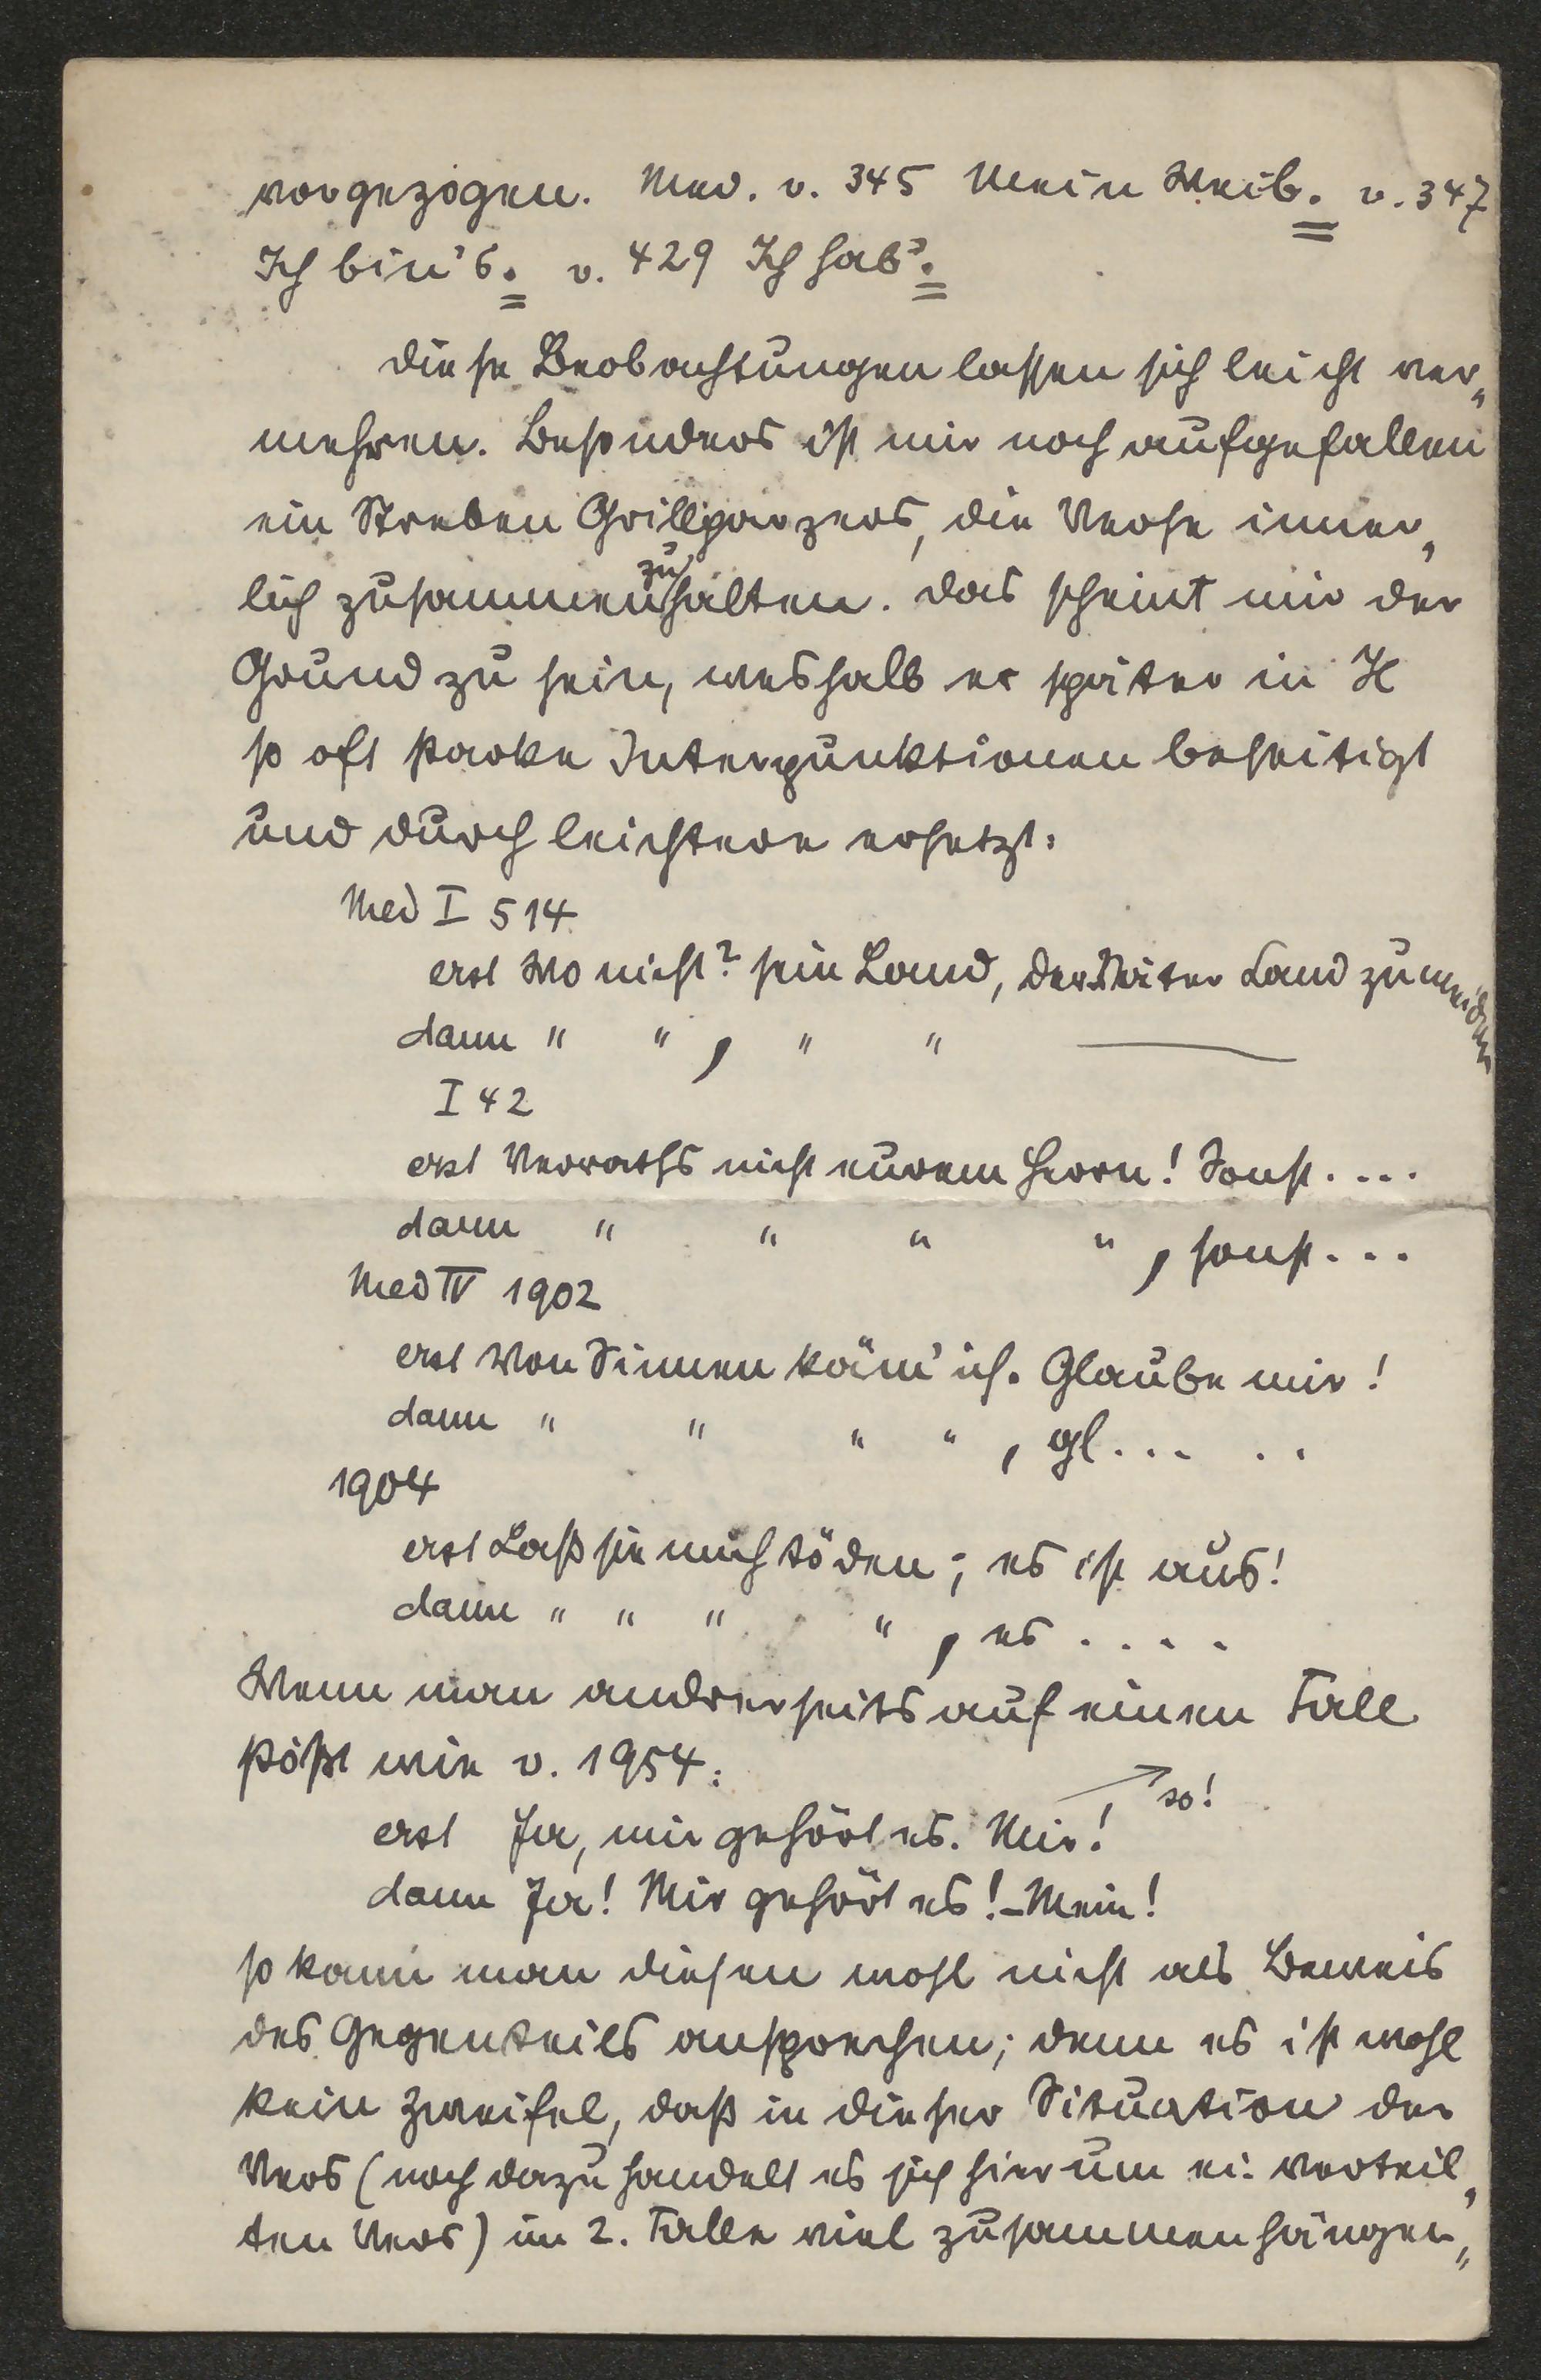 vorgezogen. Med. v. 345 Mein Weib. v. 347
Ich bin's. v. 429 Ich hab'.
Diese Beobachtungen lassen sich leicht ver„
mehren. Besonders ist mir noch aufgefallen
ein Streben Grillparzers, die Verse inner„
lich zusammenzuhalten. Das scheint mir der
Grund zu sein, weshalb er später in H
so oft starke Interpunktionen beseitigt
und durch leichtere ersetzt:
Med I 514
erst Wo nicht? sein Land, der Väter Land zu meiden
dann " " , " " —
I 42
erst Verraths nicht eurem Herrn! Sonst....
dann " " " " , sonst...
Med IV 1902
erst Von Sinnen käm' ich. Glaube mir!
dann " " " " , gl... ..
1904
erst Laß sie mich töden; es ist aus!
dann " " " " , es ....
Wenn man andrerseits auf einen Fall
stößt wie v. 1954:
erst Ja, mir gehört es. Mir! so!
dann Ja! Mir gehört es! – Mein!
so kann man diesen wohl nicht als Beweis
des Gegenteils ansprechen; denn es ist wohl
kein Zweifel, daß in dieser Situation der
Vers (noch dazu handelt es sich hier um ei: verteil„
ten Vers) im 2. Falle viel zusammenhängen„